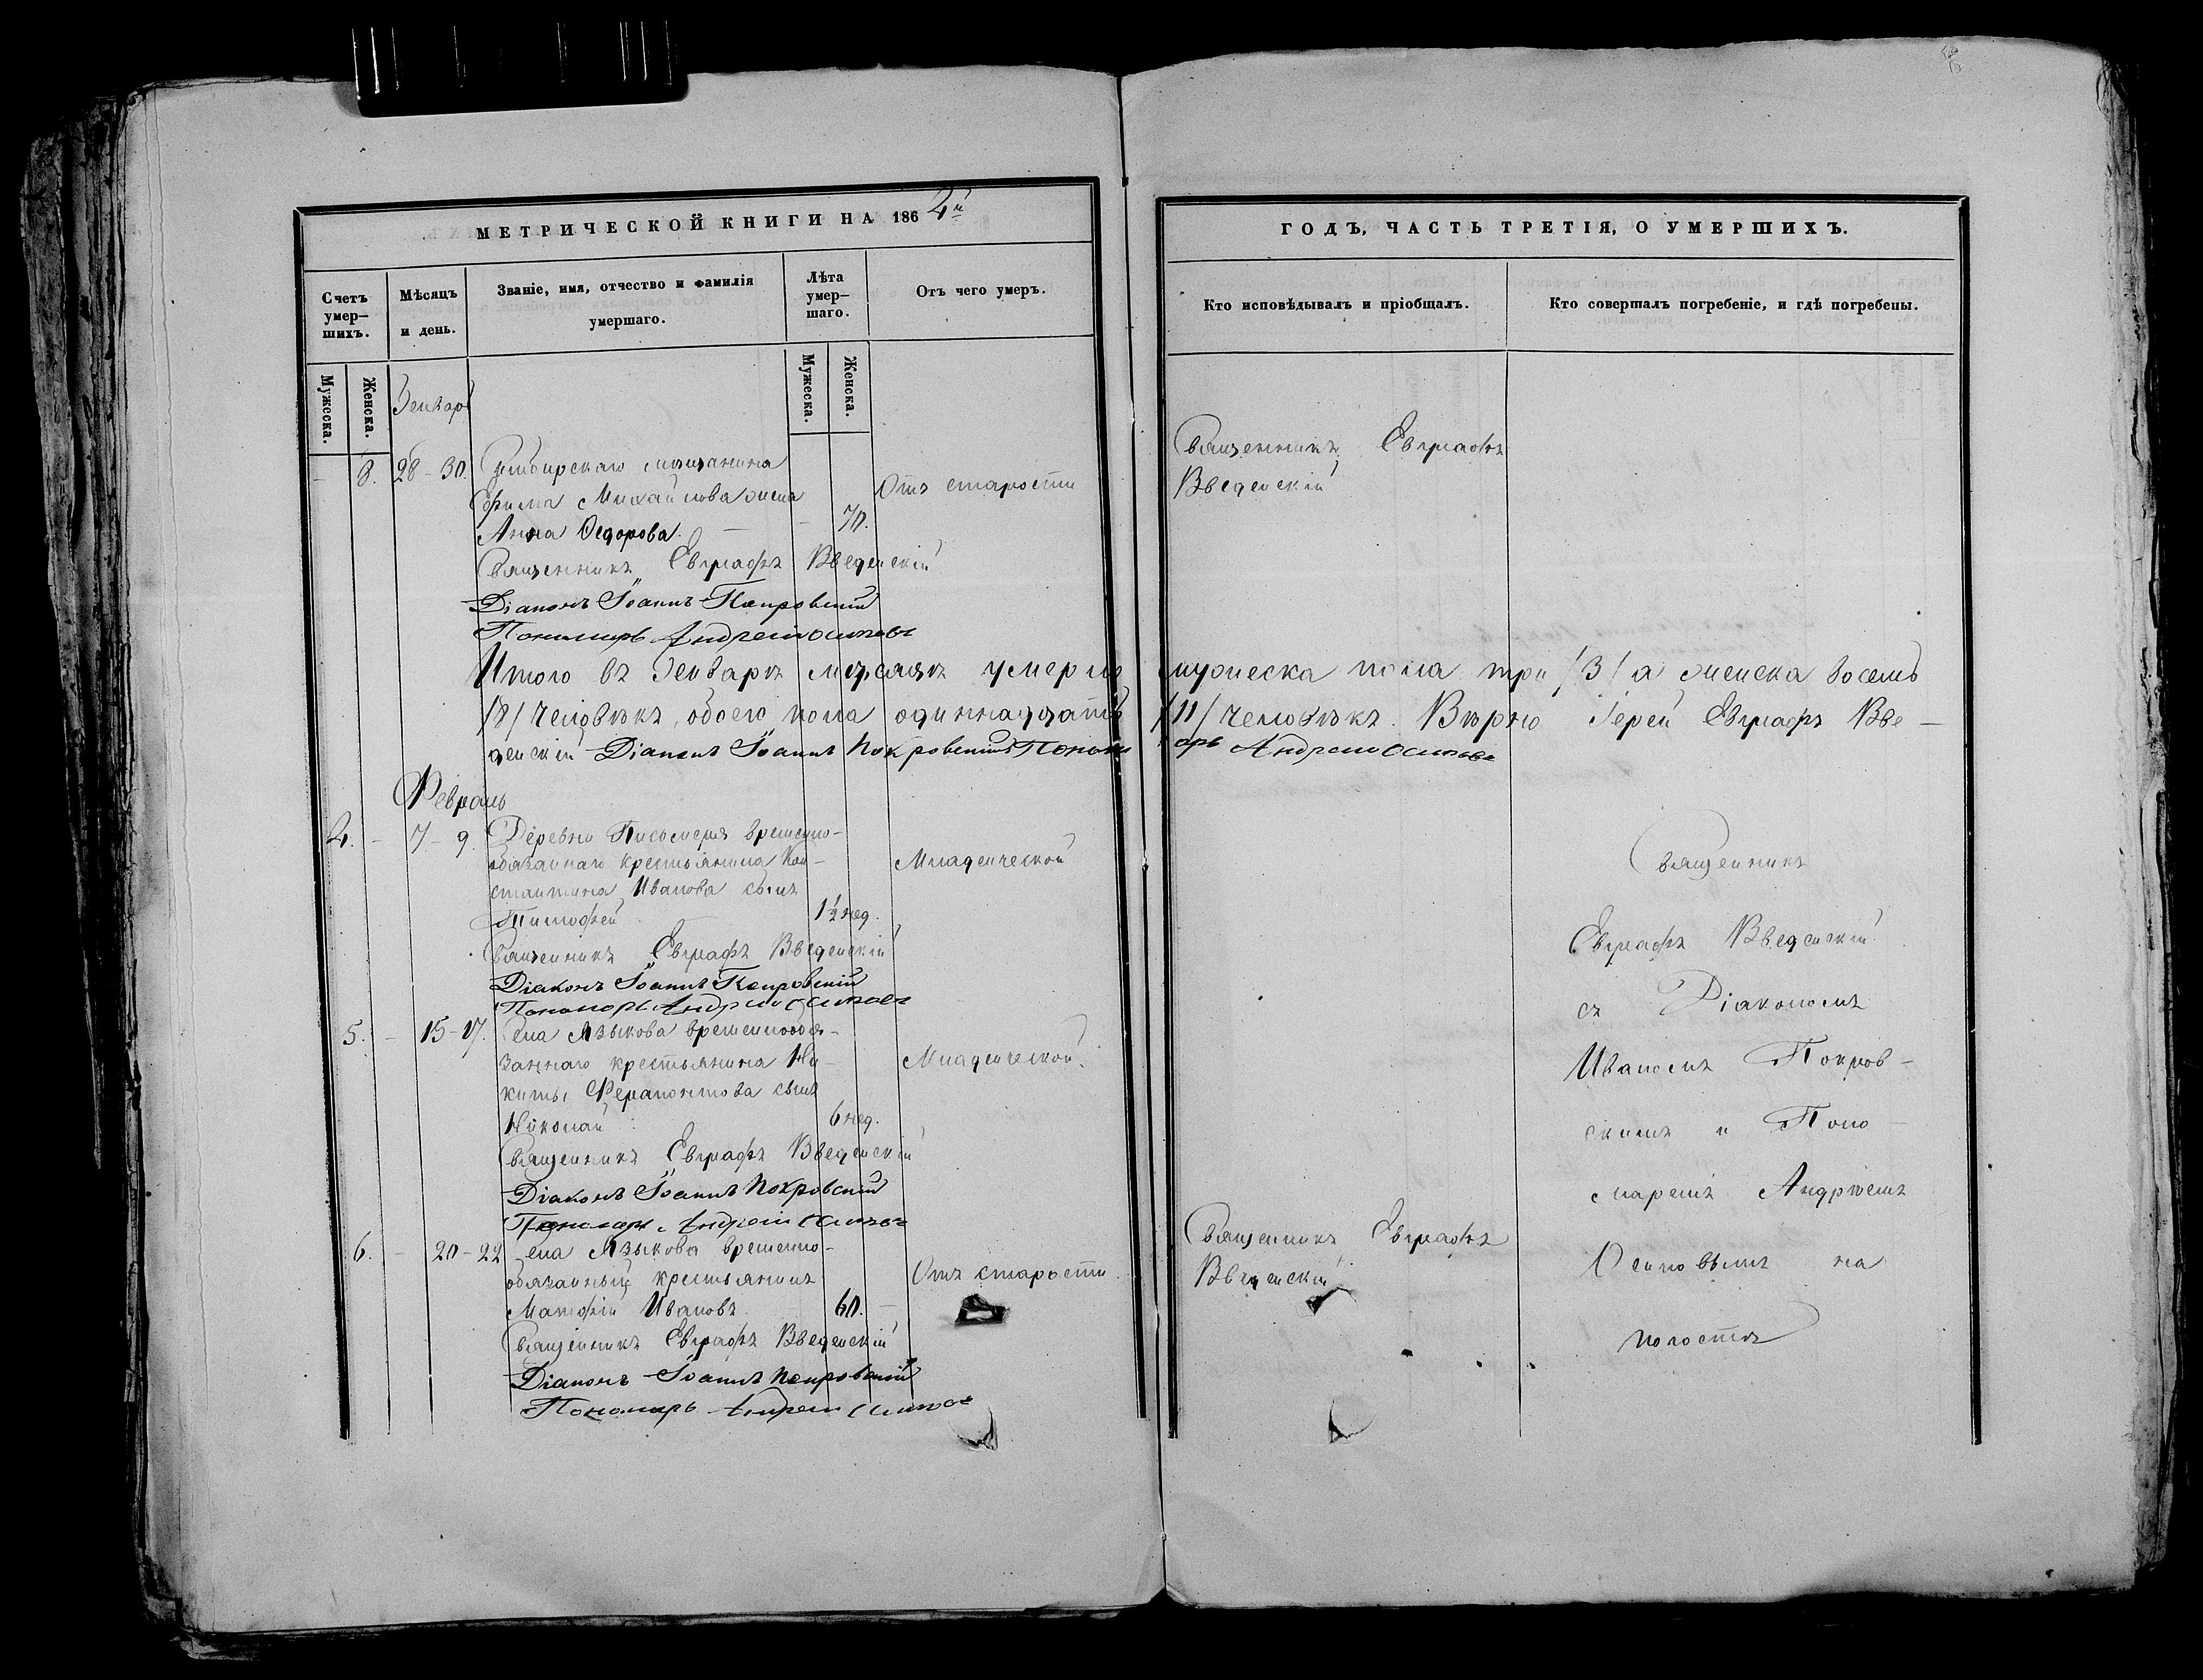 МЕТРИЧЕСКОЙ КНИГИ НА 1862й
Счетъ умершихъ.
Мѣсяцъ и день.
Званіе, имя, отчество и фамилія умершаго.
Лѣта умершаго.
Отъ чего умеръ.
Мужеска.
Женска.
Мужеска.
Женска.
Генварь
- 8. 28-30. Симбирскаго мѣщанина
Ефима Михайлова жена
Отъ старости
Анна Ѳедорова. - 70.
Священникъ Евграфъ Введенскій
Діаконъ Іоаннъ Покровскій
Пономарь Андрей Осиповъ
Итого въ Генварѣ мѣсяцѣ умерло
/8/ человѣкъ, обоего пола одиннадцать
денскій Діаконъ Іоаннъ Покровскій Поном
Февраль
4. - 7-9. Деревни временно-
обязаннаго крестьянина Кон-
Младенческой
стантина Иванова сынъ
Тимофей 1½ нед.
Священникъ Евграфъ Введенскій
Діаконъ Іоаннъ Покровскій
Пономарь Андрей Осиповъ
5. - 15-17. Села Языкова временнообя-
заннаго крестьянина Ни-
Младенческой.
киты Ферапонтова сынъ
Николай 6 нед.
Священникъ Евграфъ Введенскій
Діаконъ Іоаннъ Покровскій
Пономарь Андрей Осиповъ
6. - 20-22 Села Языкова временно-
обязанный крестьянинъ
Отъ старости.
Матфій Ивановъ 60. -
Священникъ Евграфъ Введенскій
Діаконъ Іоаннъ Покровскій
Пономарь Андрей Осиповъ
ГОДЪ, ЧАСТЬ ТРЕТІЯ, О УМЕРШИХЪ.
Кто исповѣдывалъ и пріобщалъ.
Кто совершалъ погребеніе, и гдѣ погребены.
Священникъ Евграфъ
Введенскій
мужеска пола три /3/ а женска восемь
/11/ человѣкъ. Вѣрно Іерей Евграфъ Вве-
арь Андрей Осиповъ
Священникъ
Евграфъ Введенскій
съ Діакономъ
Иваномъ Покров-
скимъ и Поно-
маремъ Андрѣемъ
Священникъ Евграфъ
Введенскій
Осиповымъ на
погостѣ